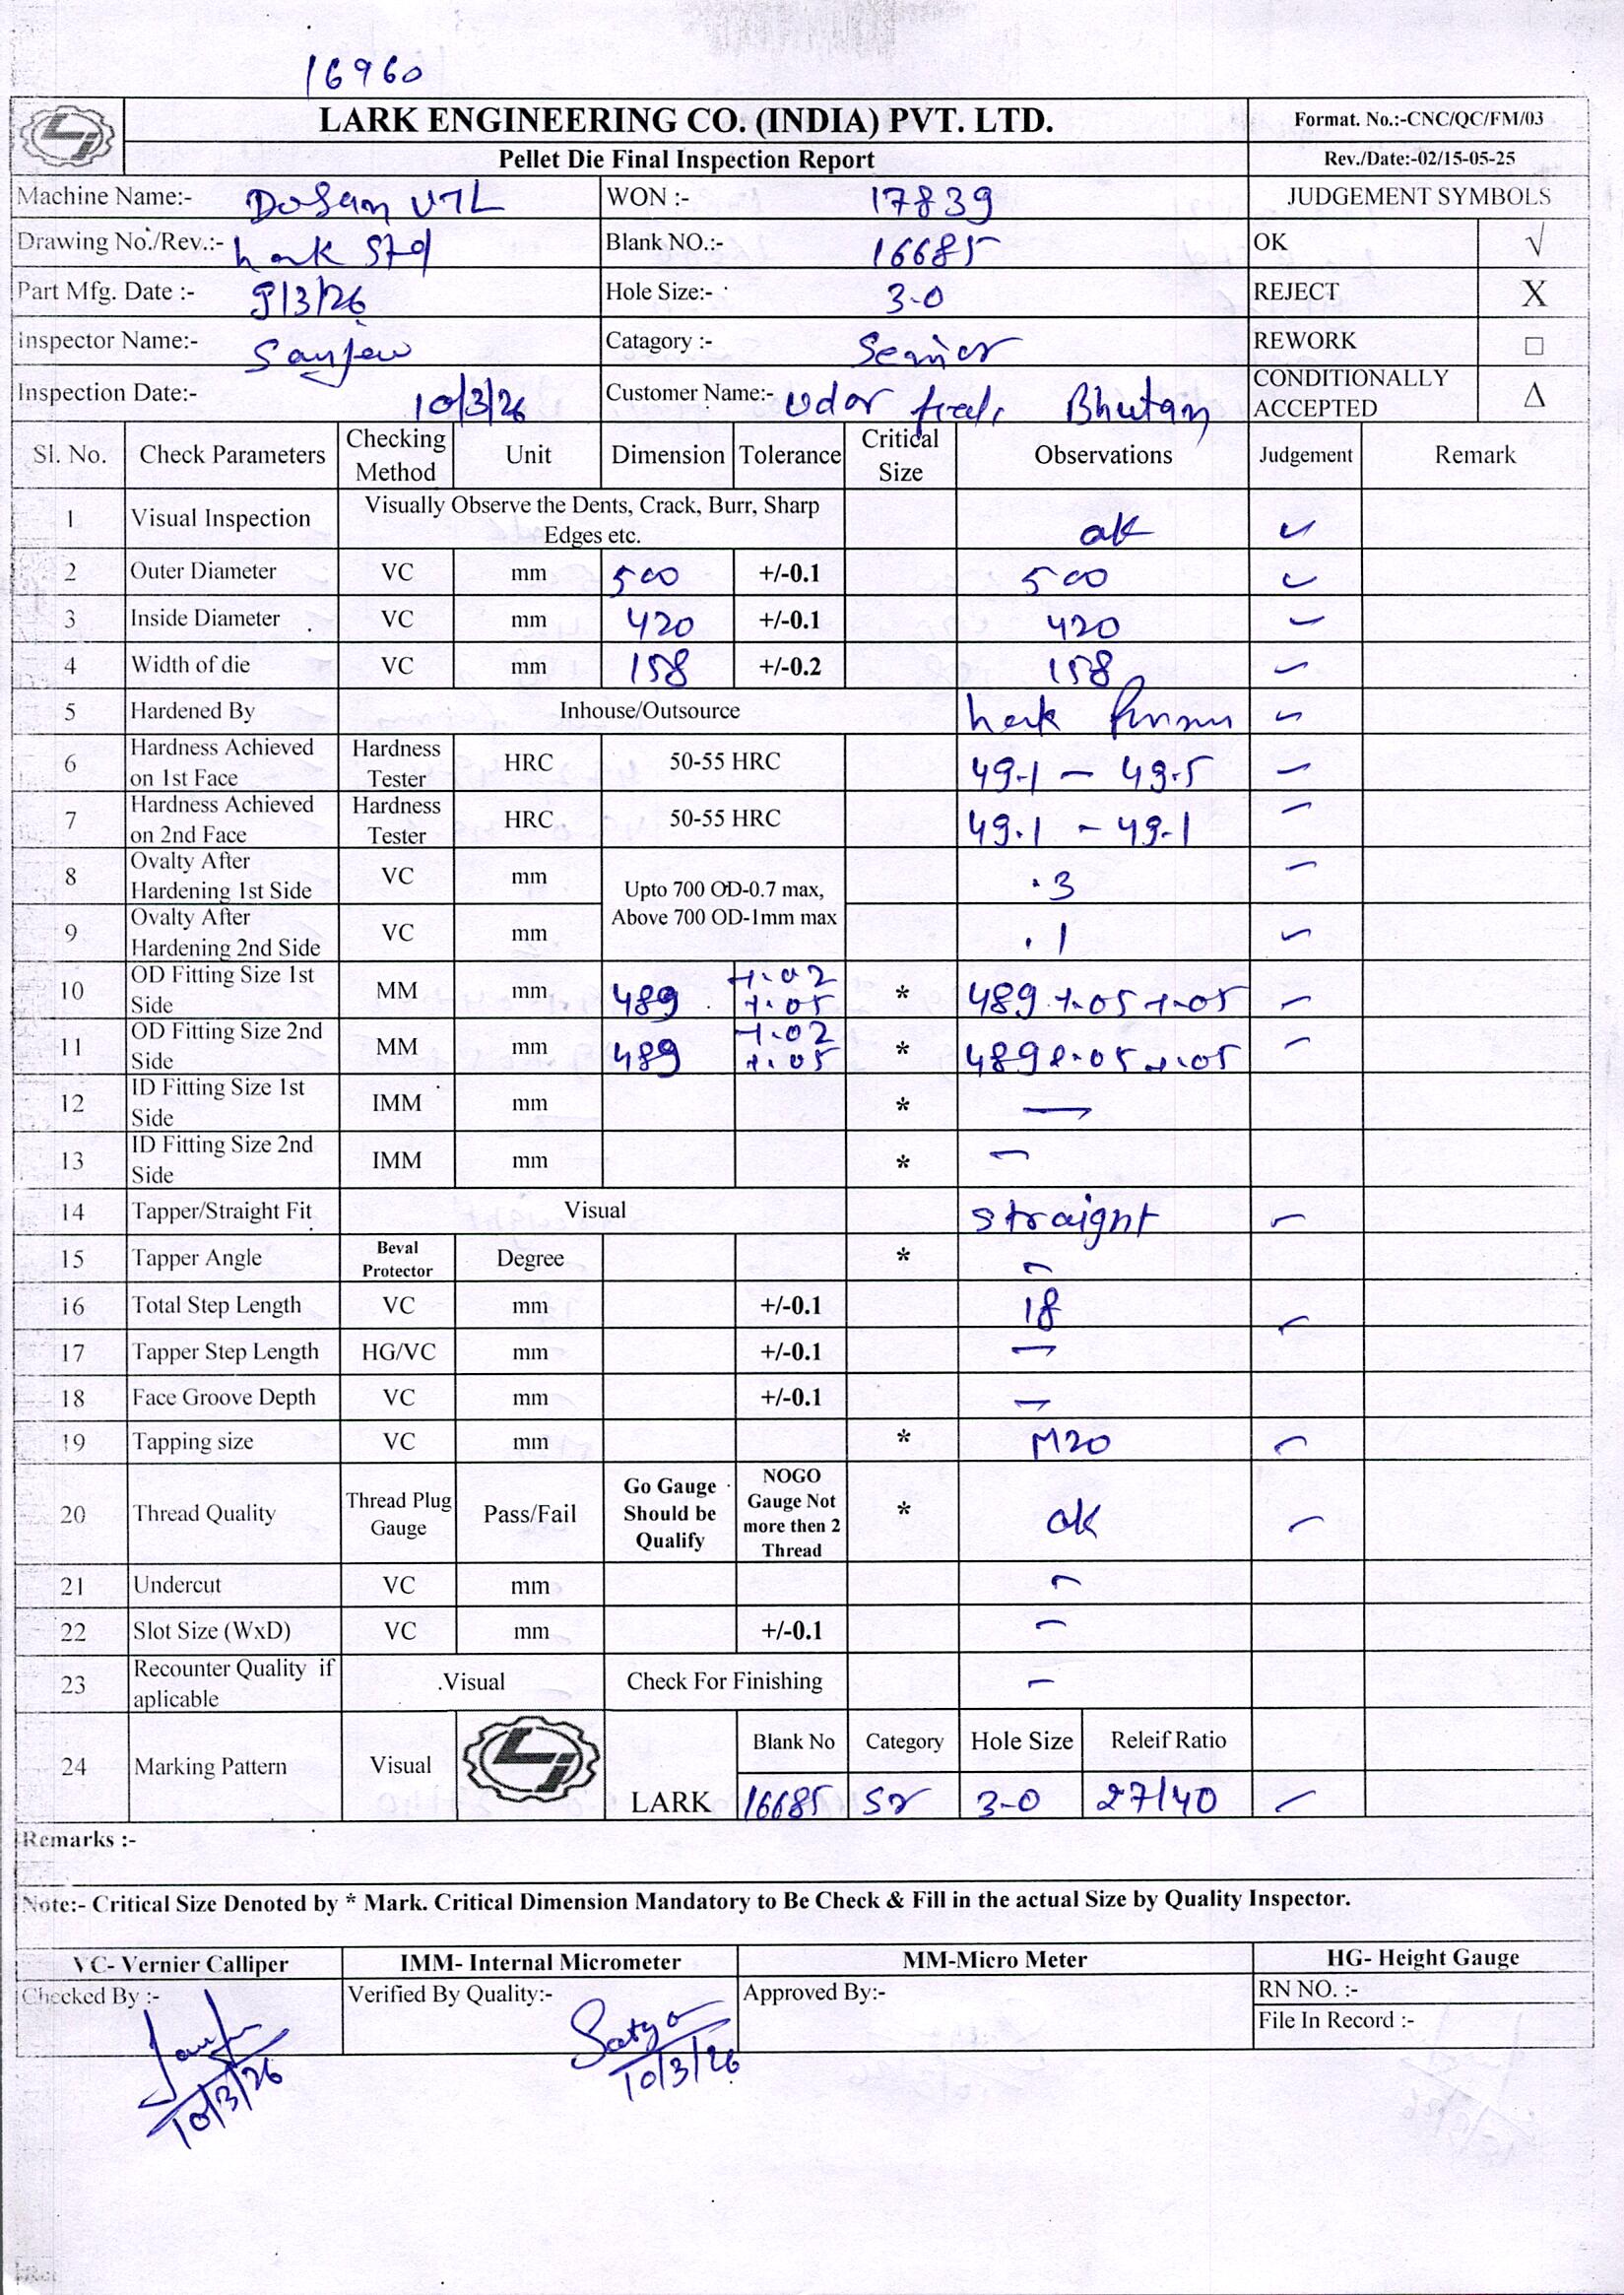 16960
LARK ENGINEERING CO. (INDIA) PVT. LTD. Format. No.:-CNC/QC/FM/03
Pellet Die Final Inspection Report Rev./Date:-02/15-05-25
Machine Name:- Dosan VTL WON :- 17839 JUDGEMENT SYMBOLS
Drawing No./Rev.:- Lark Std Blank NO.:- 16685 OK √
Part Mfg. Date :- 9/3/26 Hole Size:- 3-0 REJECT X
Inspector Name:- Sanjeev Catagory :- Senior REWORK □
Inspection Date:- 10/3/26 Customer Name:- Bhutan CONDITIONALLY ACCEPTED Δ
Sl. No. Check Parameters Checking Method Unit Dimension Tolerance Critical Size Observations Judgement Remark
1 Visual Inspection Visually Observe the Dents, Crack, Burr, Sharp Edges etc. ok ✓
2 Outer Diameter VC mm 500 +/-0.1 500 ✓
3 Inside Diameter VC mm 420 +/-0.1 420 ✓
4 Width of die VC mm 158 +/-0.2 158 ✓
5 Hardened By Inhouse/Outsource Lark ✓
6 Hardness Achieved on 1st Face Hardness Tester HRC 50-55 HRC 49.1 – 49.5 ✓
7 Hardness Achieved on 2nd Face Hardness Tester HRC 50-55 HRC 49.1 – 49.1 ✓
8 Ovalty After Hardening 1st Side VC mm Upto 700 OD-0.7 max, Above 700 OD-1mm max .3 ✓
9 Ovalty After Hardening 2nd Side VC mm .1 ✓
10 OD Fitting Size 1st Side MM mm 489 +.02 +.05 * 489 +.05 +.05 ✓
11 OD Fitting Size 2nd Side MM mm 489 +.02 +.05 * 489 +.05 +.05 ✓
12 ID Fitting Size 1st Side IMM mm * —
13 ID Fitting Size 2nd Side IMM mm * —
14 Tapper/Straight Fit Visual straight ✓
15 Tapper Angle Beval Protector Degree * —
16 Total Step Length VC mm +/-0.1 18 ✓
17 Tapper Step Length HG/VC mm +/-0.1 —
18 Face Groove Depth VC mm +/-0.1 —
19 Tapping size VC mm * M20 ✓
20 Thread Quality Thread Plug Gauge Pass/Fail Go Gauge Should be Qualify NOGO Gauge Not more then 2 Thread * ok ✓
21 Undercut VC mm —
22 Slot Size (WxD) VC mm +/-0.1 —
23 Recounter Quality if aplicable .Visual Check For Finishing —
24 Marking Pattern Visual LARK Blank No Category Hole Size Releif Ratio
16685 Sr 3-0 27/40 ✓
Remarks :-
Note:- Critical Size Denoted by * Mark. Critical Dimension Mandatory to Be Check & Fill in the actual Size by Quality Inspector.
VC- Vernier Calliper IMM- Internal Micrometer MM-Micro Meter HG- Height Gauge
Checked By :- Verified By Quality:- Approved By:- RN NO. :-
File In Record :-
Satya
10/3/26 10/3/26